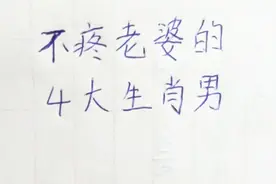 不疼老婆的
4大生肖男